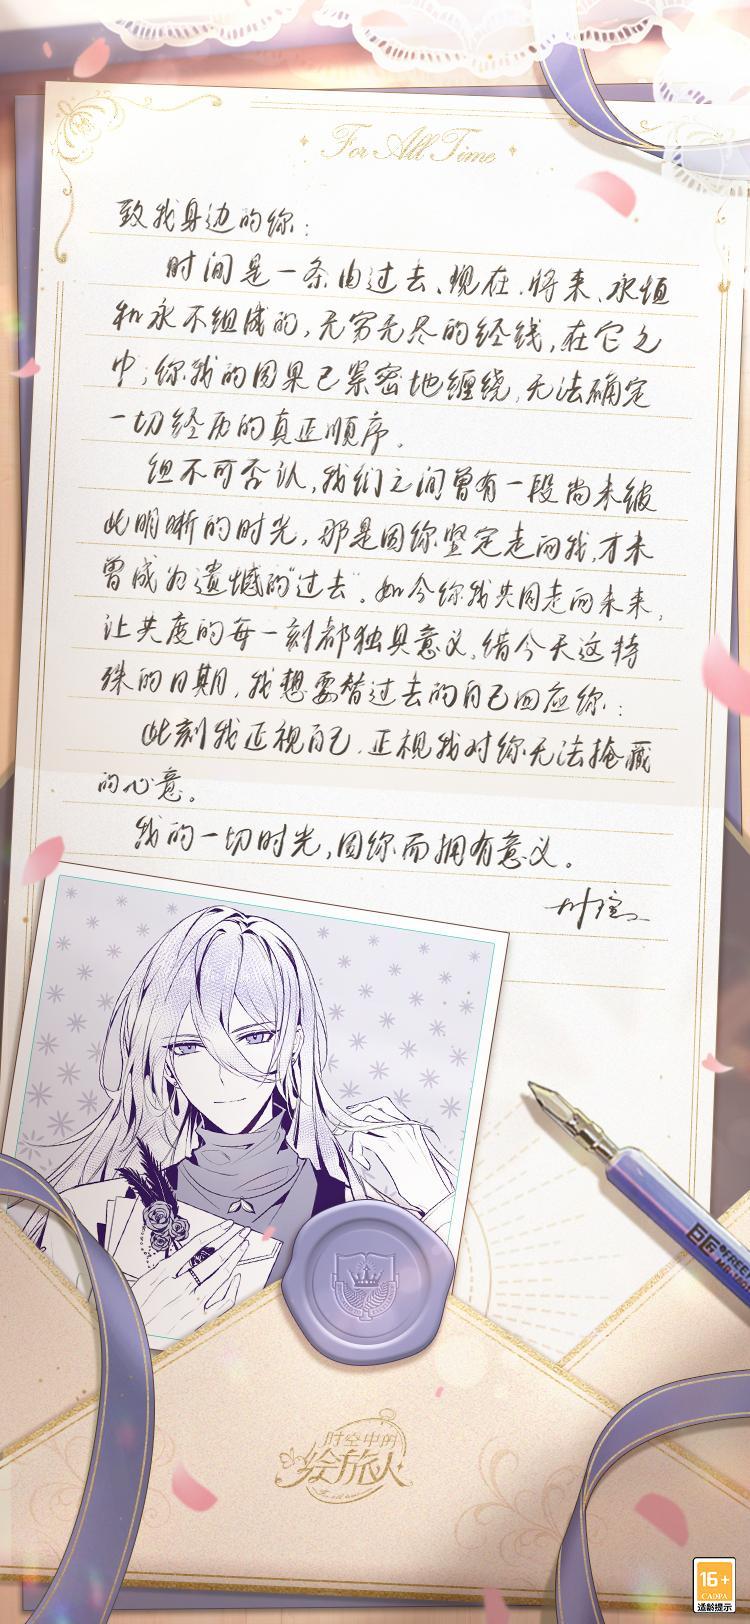 For All Time
致我身边的你：
时间是一条由过去、现在、将来、永恒
和永不组成的，无穷无尽的经线，在它之
中，你我的因果已紧密地缠绕，无法确定
一切经历的真正顺序。
但不可否认，我们之间曾有一段尚未彼
此明晰的时光，那是因你坚定走向我，才未
曾成为遗憾的“过去”。如今你我共同走向未来，
让共度的每一刻都独具意义，借今天这特
殊的日期，我想要替过去的自己回应你：
此刻我正视自己，正视我对你无法掩藏
的心意。
我的一切时光，因你而拥有意义。
叶瑄
巨匠
时空中的
绘旅人
16+
CADPA
适龄提示